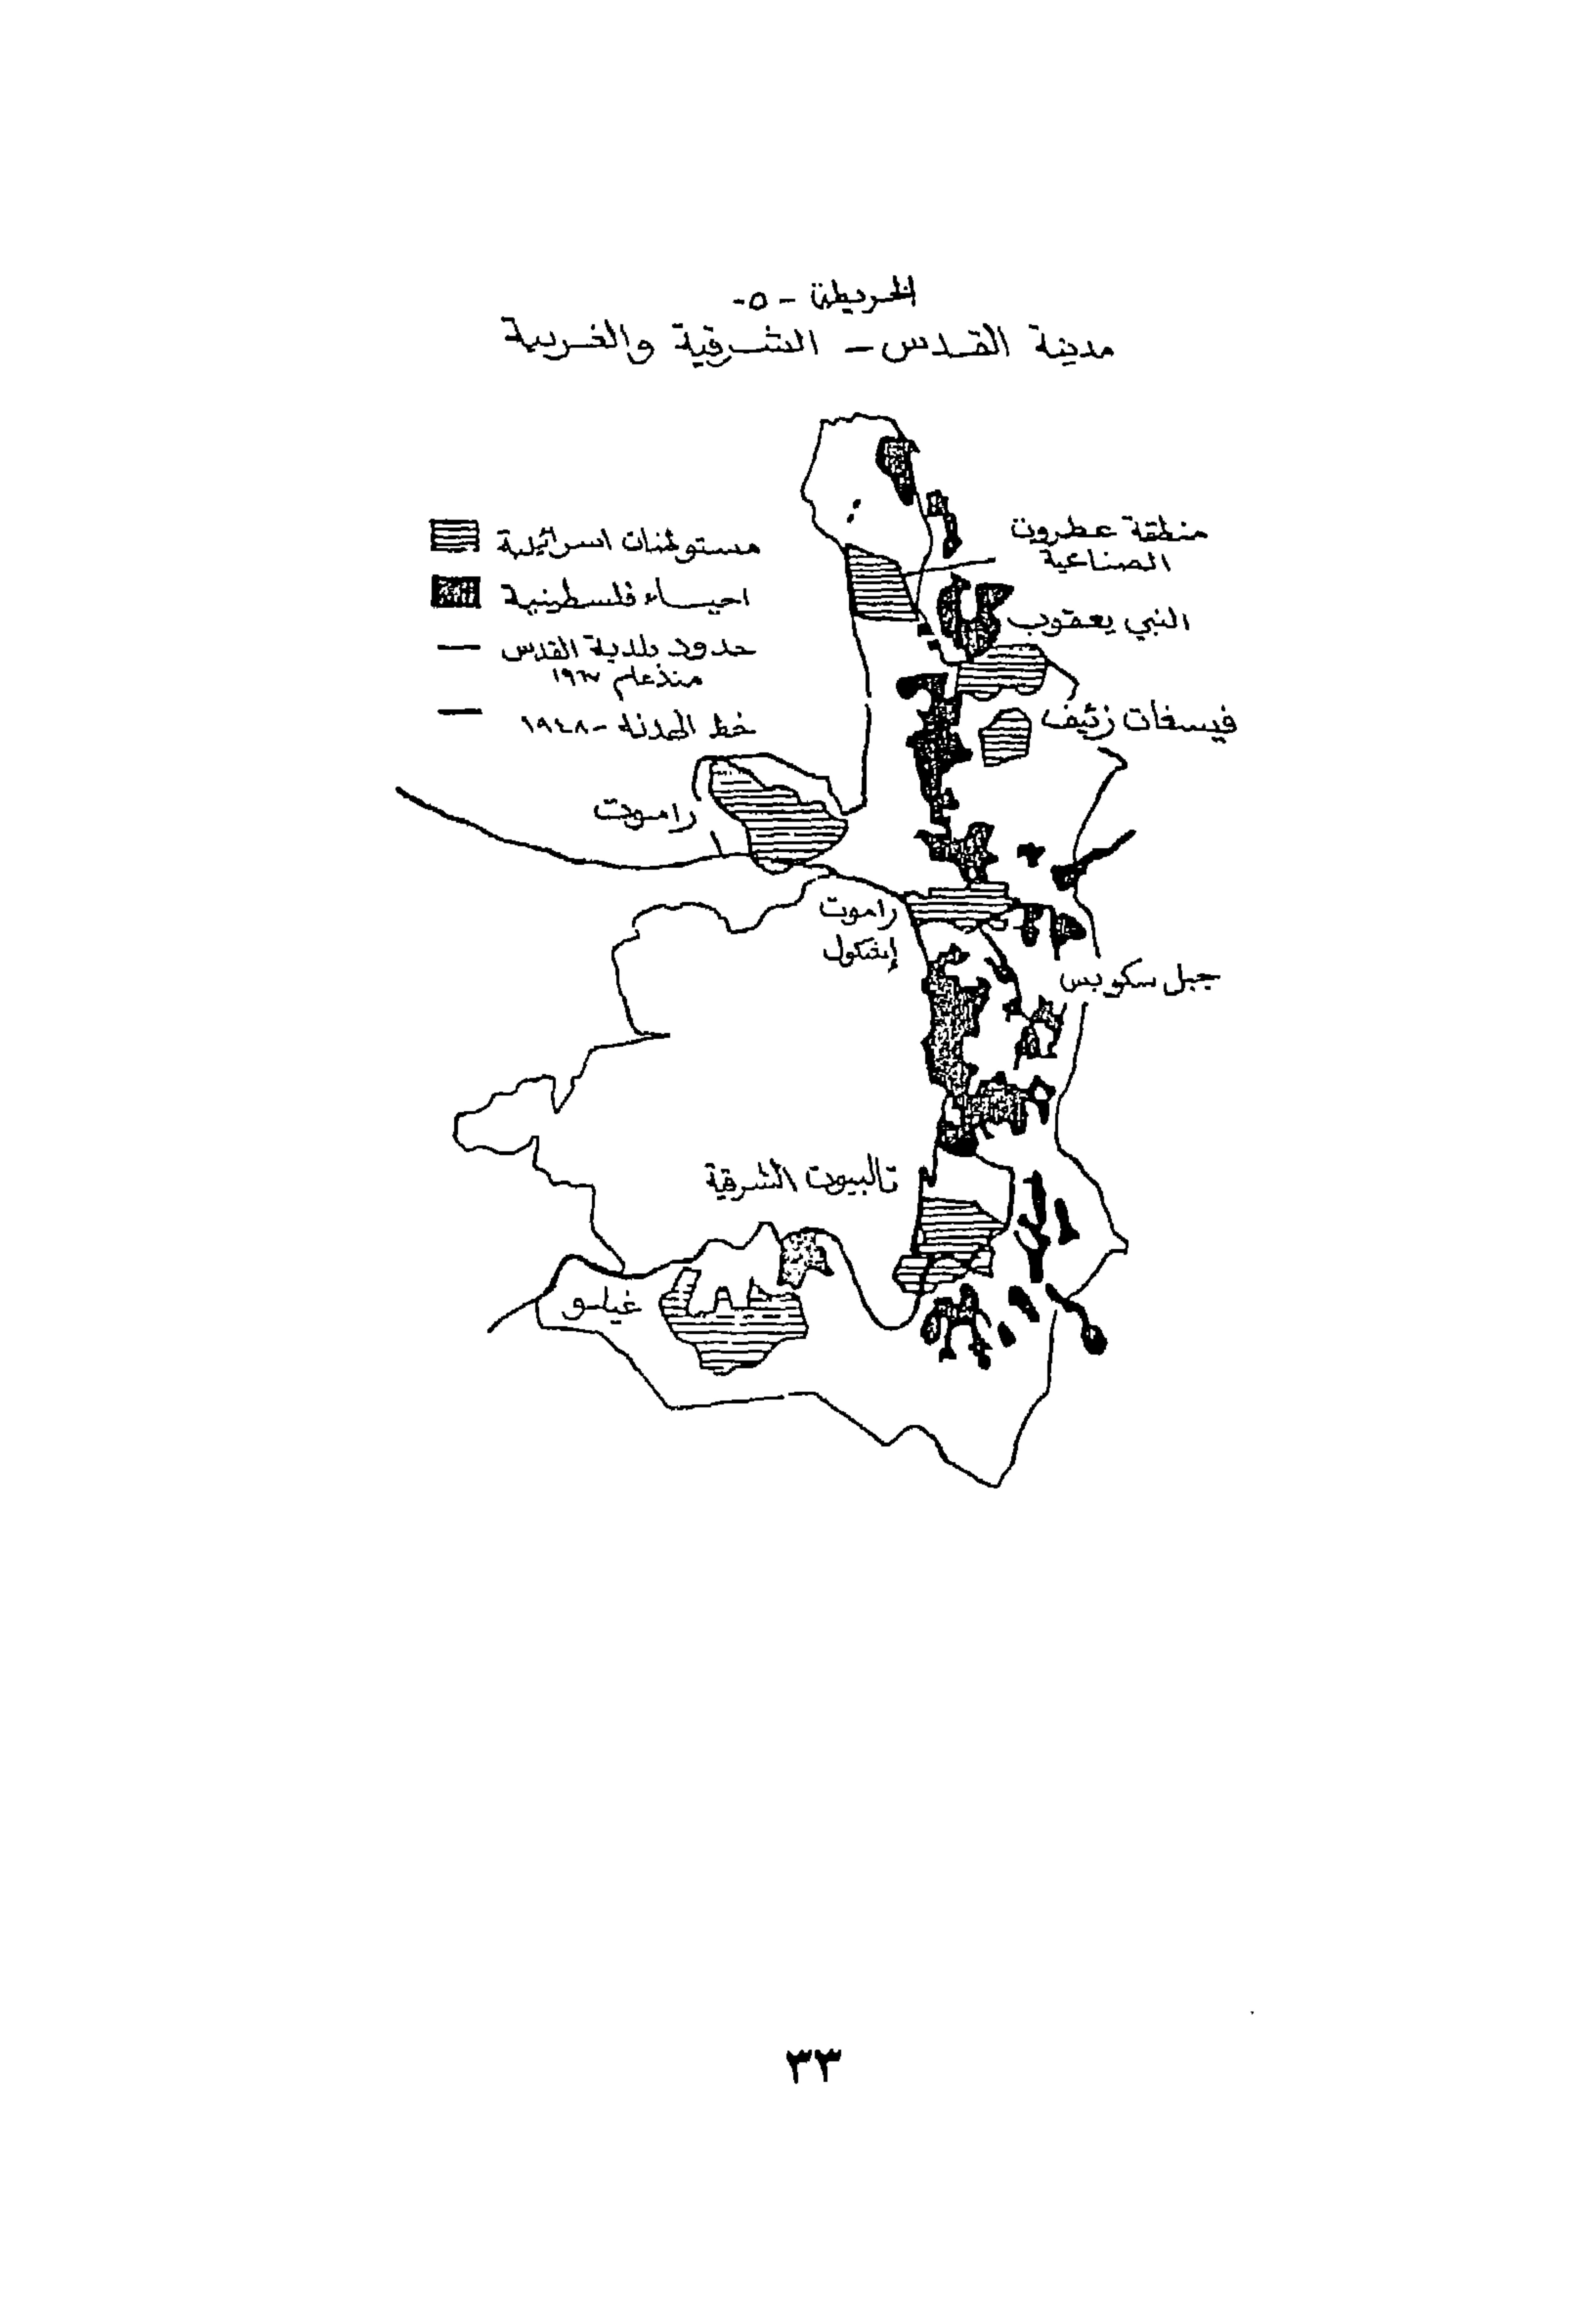 الخريطة - ٥-
مدينة القدس - الشرقية والغربية
مستوطنات اسرائيلية
احياء فلسطينية
حدود بلدية القدس
منذ عام ١٩٦٧
خط الهدنه - ١٩٤٨
منطقة عطروت
الصناعية
النبي يعقوب
فيسغات زئيف
راموت
راموت
إشكول
جبل سكوبس
تالبيوت الشرقية
غيلو
٣٣